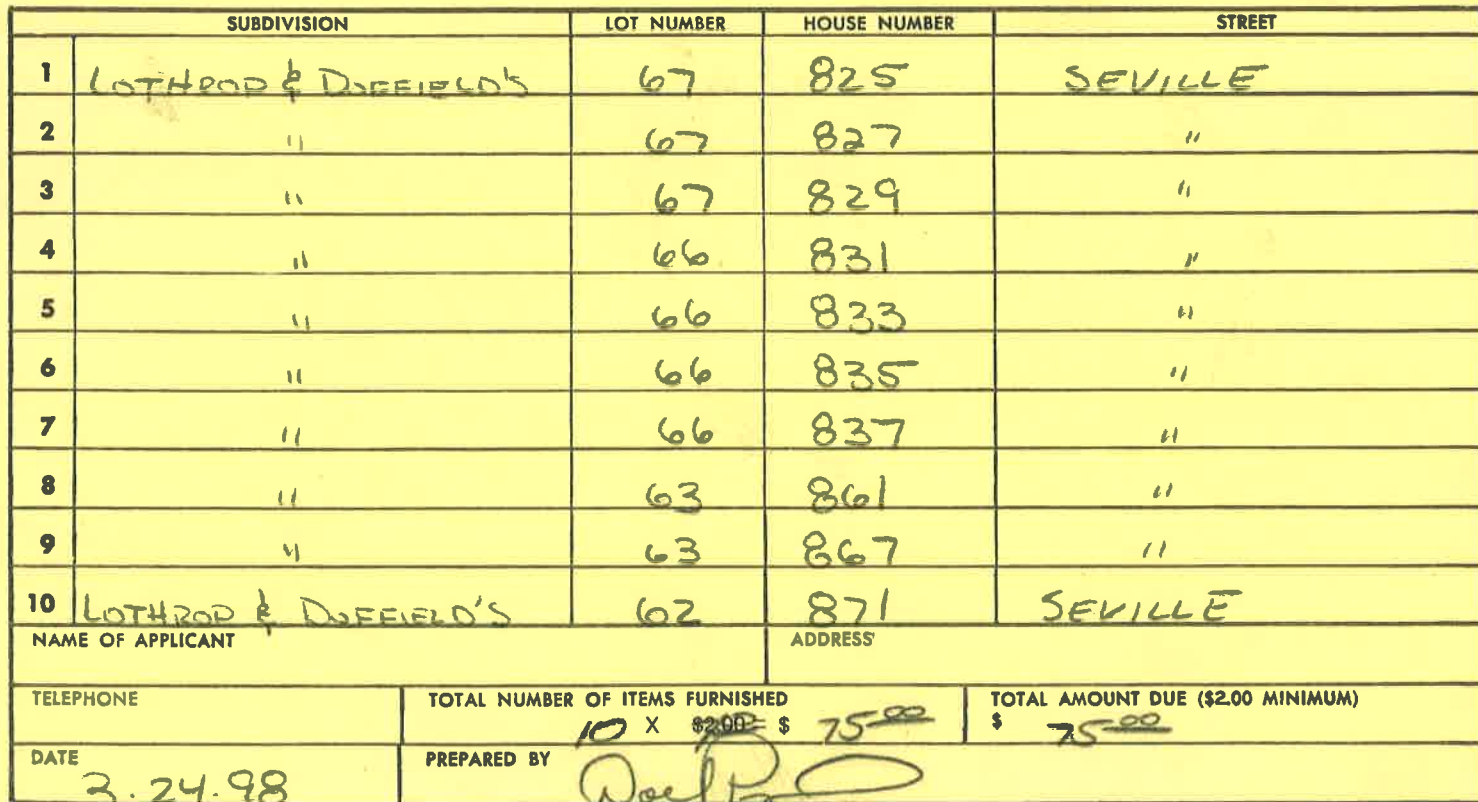 SUBDIVISION LOT NUMBER HOUSE NUMBER STREET
1 LOTHROP & DUFFIELD'S 67 825 SEVILLE
2 " 67 827 "
3 " 67 829 "
4 " 66 831 "
5 " 66 833 "
6 " 66 835 "
7 " 66 837 "
8 " 63 861 "
9 " 63 867 "
10 LOTHROP & DUFFIELD'S 62 871 SEVILLE
NAME OF APPLICANT ADDRESS
TELEPHONE TOTAL NUMBER OF ITEMS FURNISHED TOTAL AMOUNT DUE ($2.00 MINIMUM)
10 X $2.00 = $ 75.00 $ 75.00
DATE PREPARED BY
3.24.98